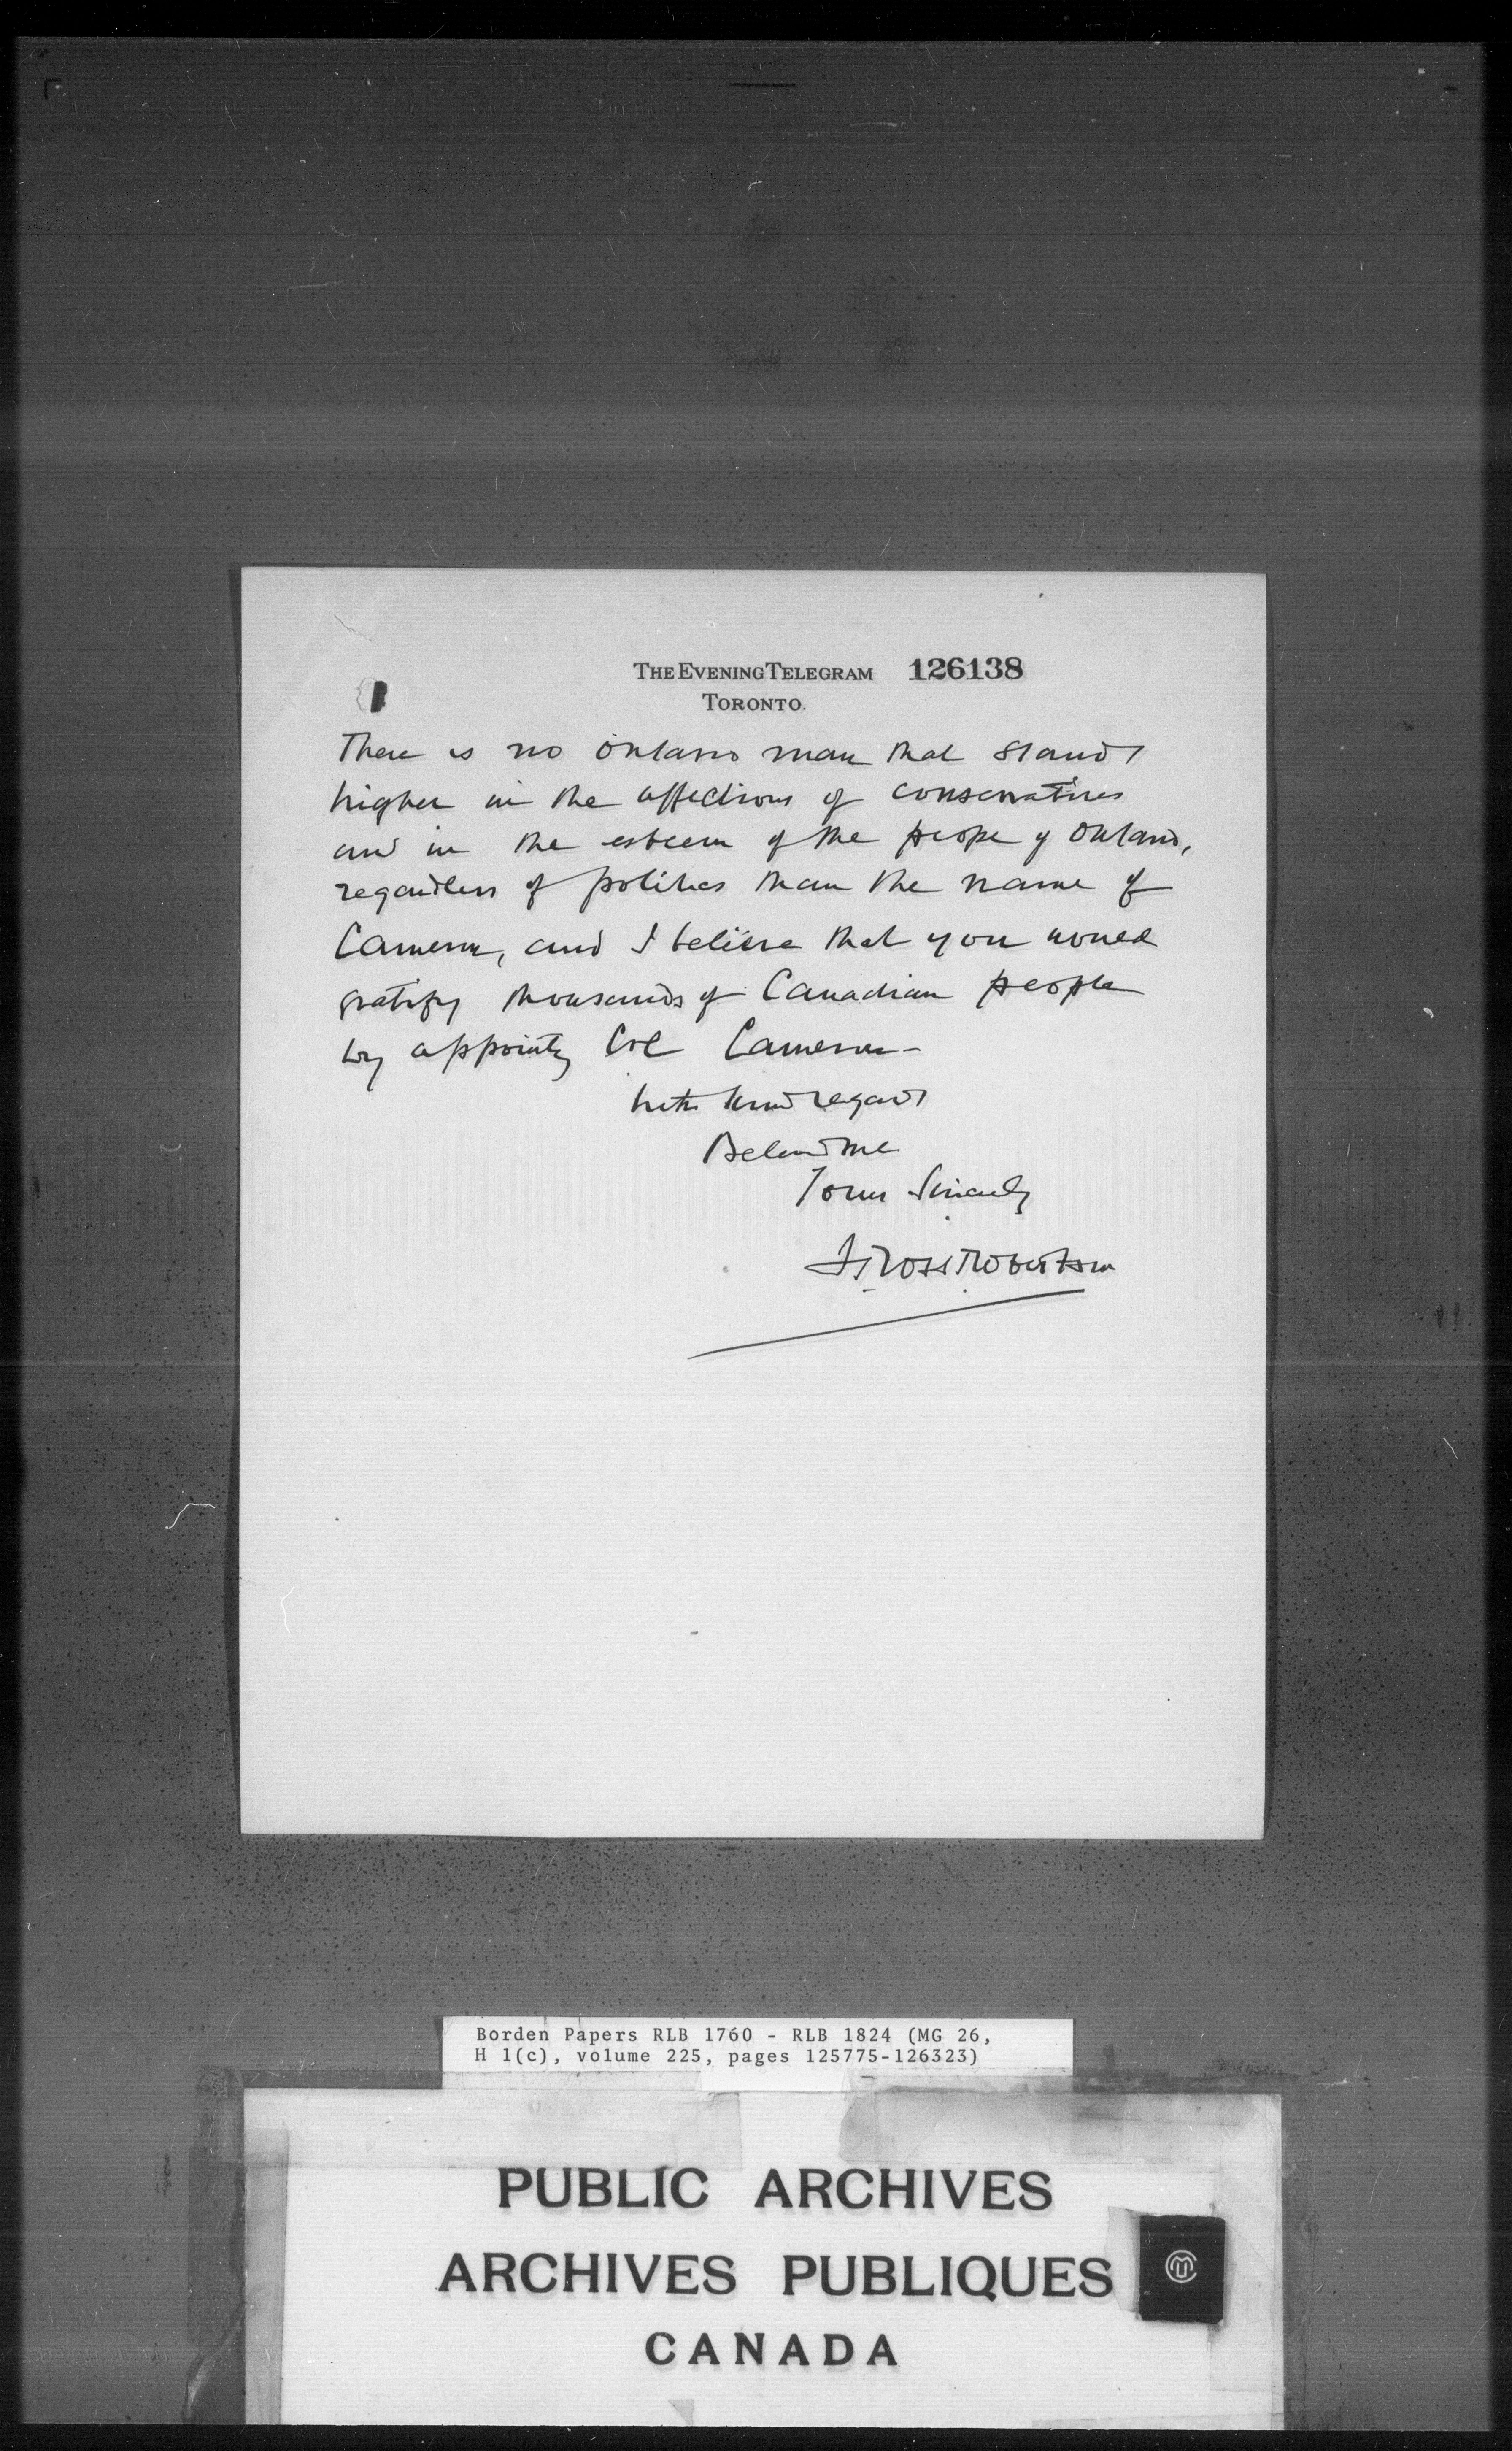 THE EVENING TELEGRAM 126138
TORONTO.
There is no Ontario man that stands
higher in the affections of conservatives
and in the esteem of the people of Ontario,
regardless of politics than the name of
Cameron, and I believe that you would
gratify thousands of Canadian people
by appointg Col Cameron -
With kind regards
Believe me
Yours Sincerely
J. Ross Robertson
Borden Papers RLB 1760 - RLB 1824 (MG 26,
H 1(c), volume 225, pages 125775-126323)
PUBLIC ARCHIVES
ARCHIVES PUBLIQUES
CANADA